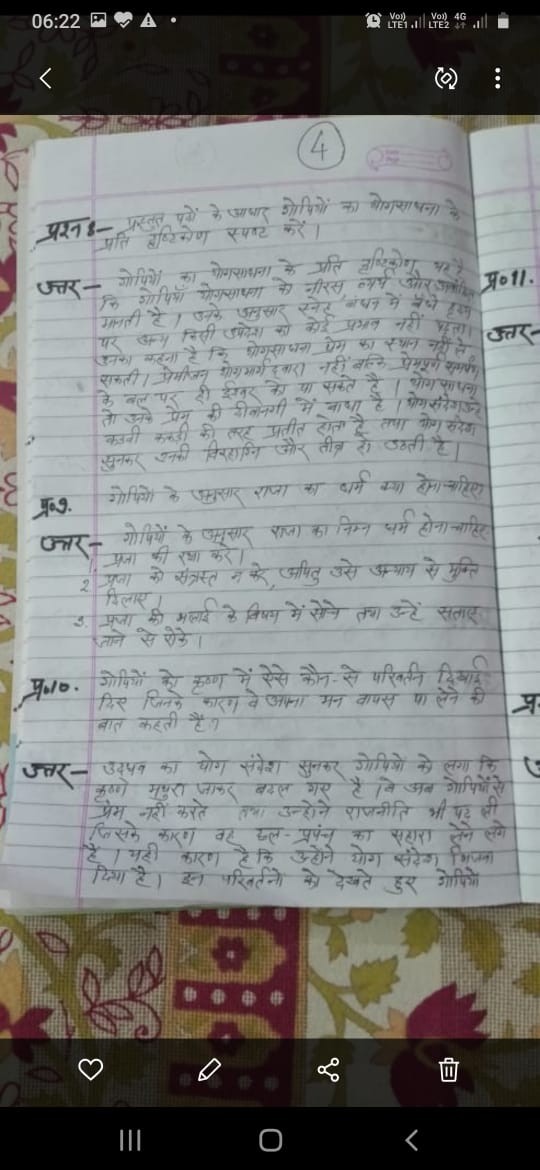 06:22
Vo) LTE1 Vo) LTE2 4G
4
प्रश्न 8- प्रस्तुत पदों के आधार गोपियों का योगसाधना के
प्रति दृष्टिकोण स्पष्ट करें।
उत्तर- गोपियों का योगसाधना के प्रति दृष्टिकोण यह है
कि गोपियाँ योगसाधना को नीरस, व्यर्थ और
मानती है। उनके अनुसार स्नेह बंधन में बँधे हृदय
पर अन्य किसी उपदेश का कोई प्रभाव नहीं पड़ता।
उनका कहना है कि योगसाधना प्रेम का स्थान नहीं ले
सकती। प्रेमीजन योगमार्ग द्वारा नहीं बल्कि प्रेमपूर्ण समर्पण
के बल पर ही ईश्वर को पा सकते है। योग साधना
तो उनके प्रेम की दीवानगी में बाधा है। योग संदेश उन्हें
कडवी ककडी की तरह प्रतीत होता है तथा योग संदेश
सुनकर उनकी विरहाग्नि और तीव्र हो उठती है।
प्र०9. गोपियों के अनुसार राजा का धर्म क्या होना चाहिए
उत्तर- गोपियों के अनुसार राजा का निम्न धर्म होना चाहिए
1. प्रजा की रक्षा करे।
2. प्रजा को संत्रस्त न करे, अपितु उसे अन्याय से मुक्ति
दिलाए।
3. प्रजा की भलाई के विषय में सोचे तथा उन्हें सताए
जाने से रोके।
प्र०10. गोपियों को कृष्ण में ऐसे कौन-से परिवर्तन दिखाई
दिए जिनके कारण वे अपना मन वापस पा लेने की
बात कहती है?
उत्तर- उद्धव का योग संदेश सुनकर गोपियों को लगा कि
कृष्ण मथुरा जाकर बदल गए है। वे अब गोपियों से
प्रेम नहीं करते तथा उन्होंने राजनीति भी पढ़ ली
जिसके कारण वह छल-प्रपंच का सहारा लेने लगे
है। यही कारण है कि उन्होंने योग संदेश भिजवा
दिया है। इन परिवर्तनो को देखते हुए गोपियों
प्र०11.
उत्तर-
प्र